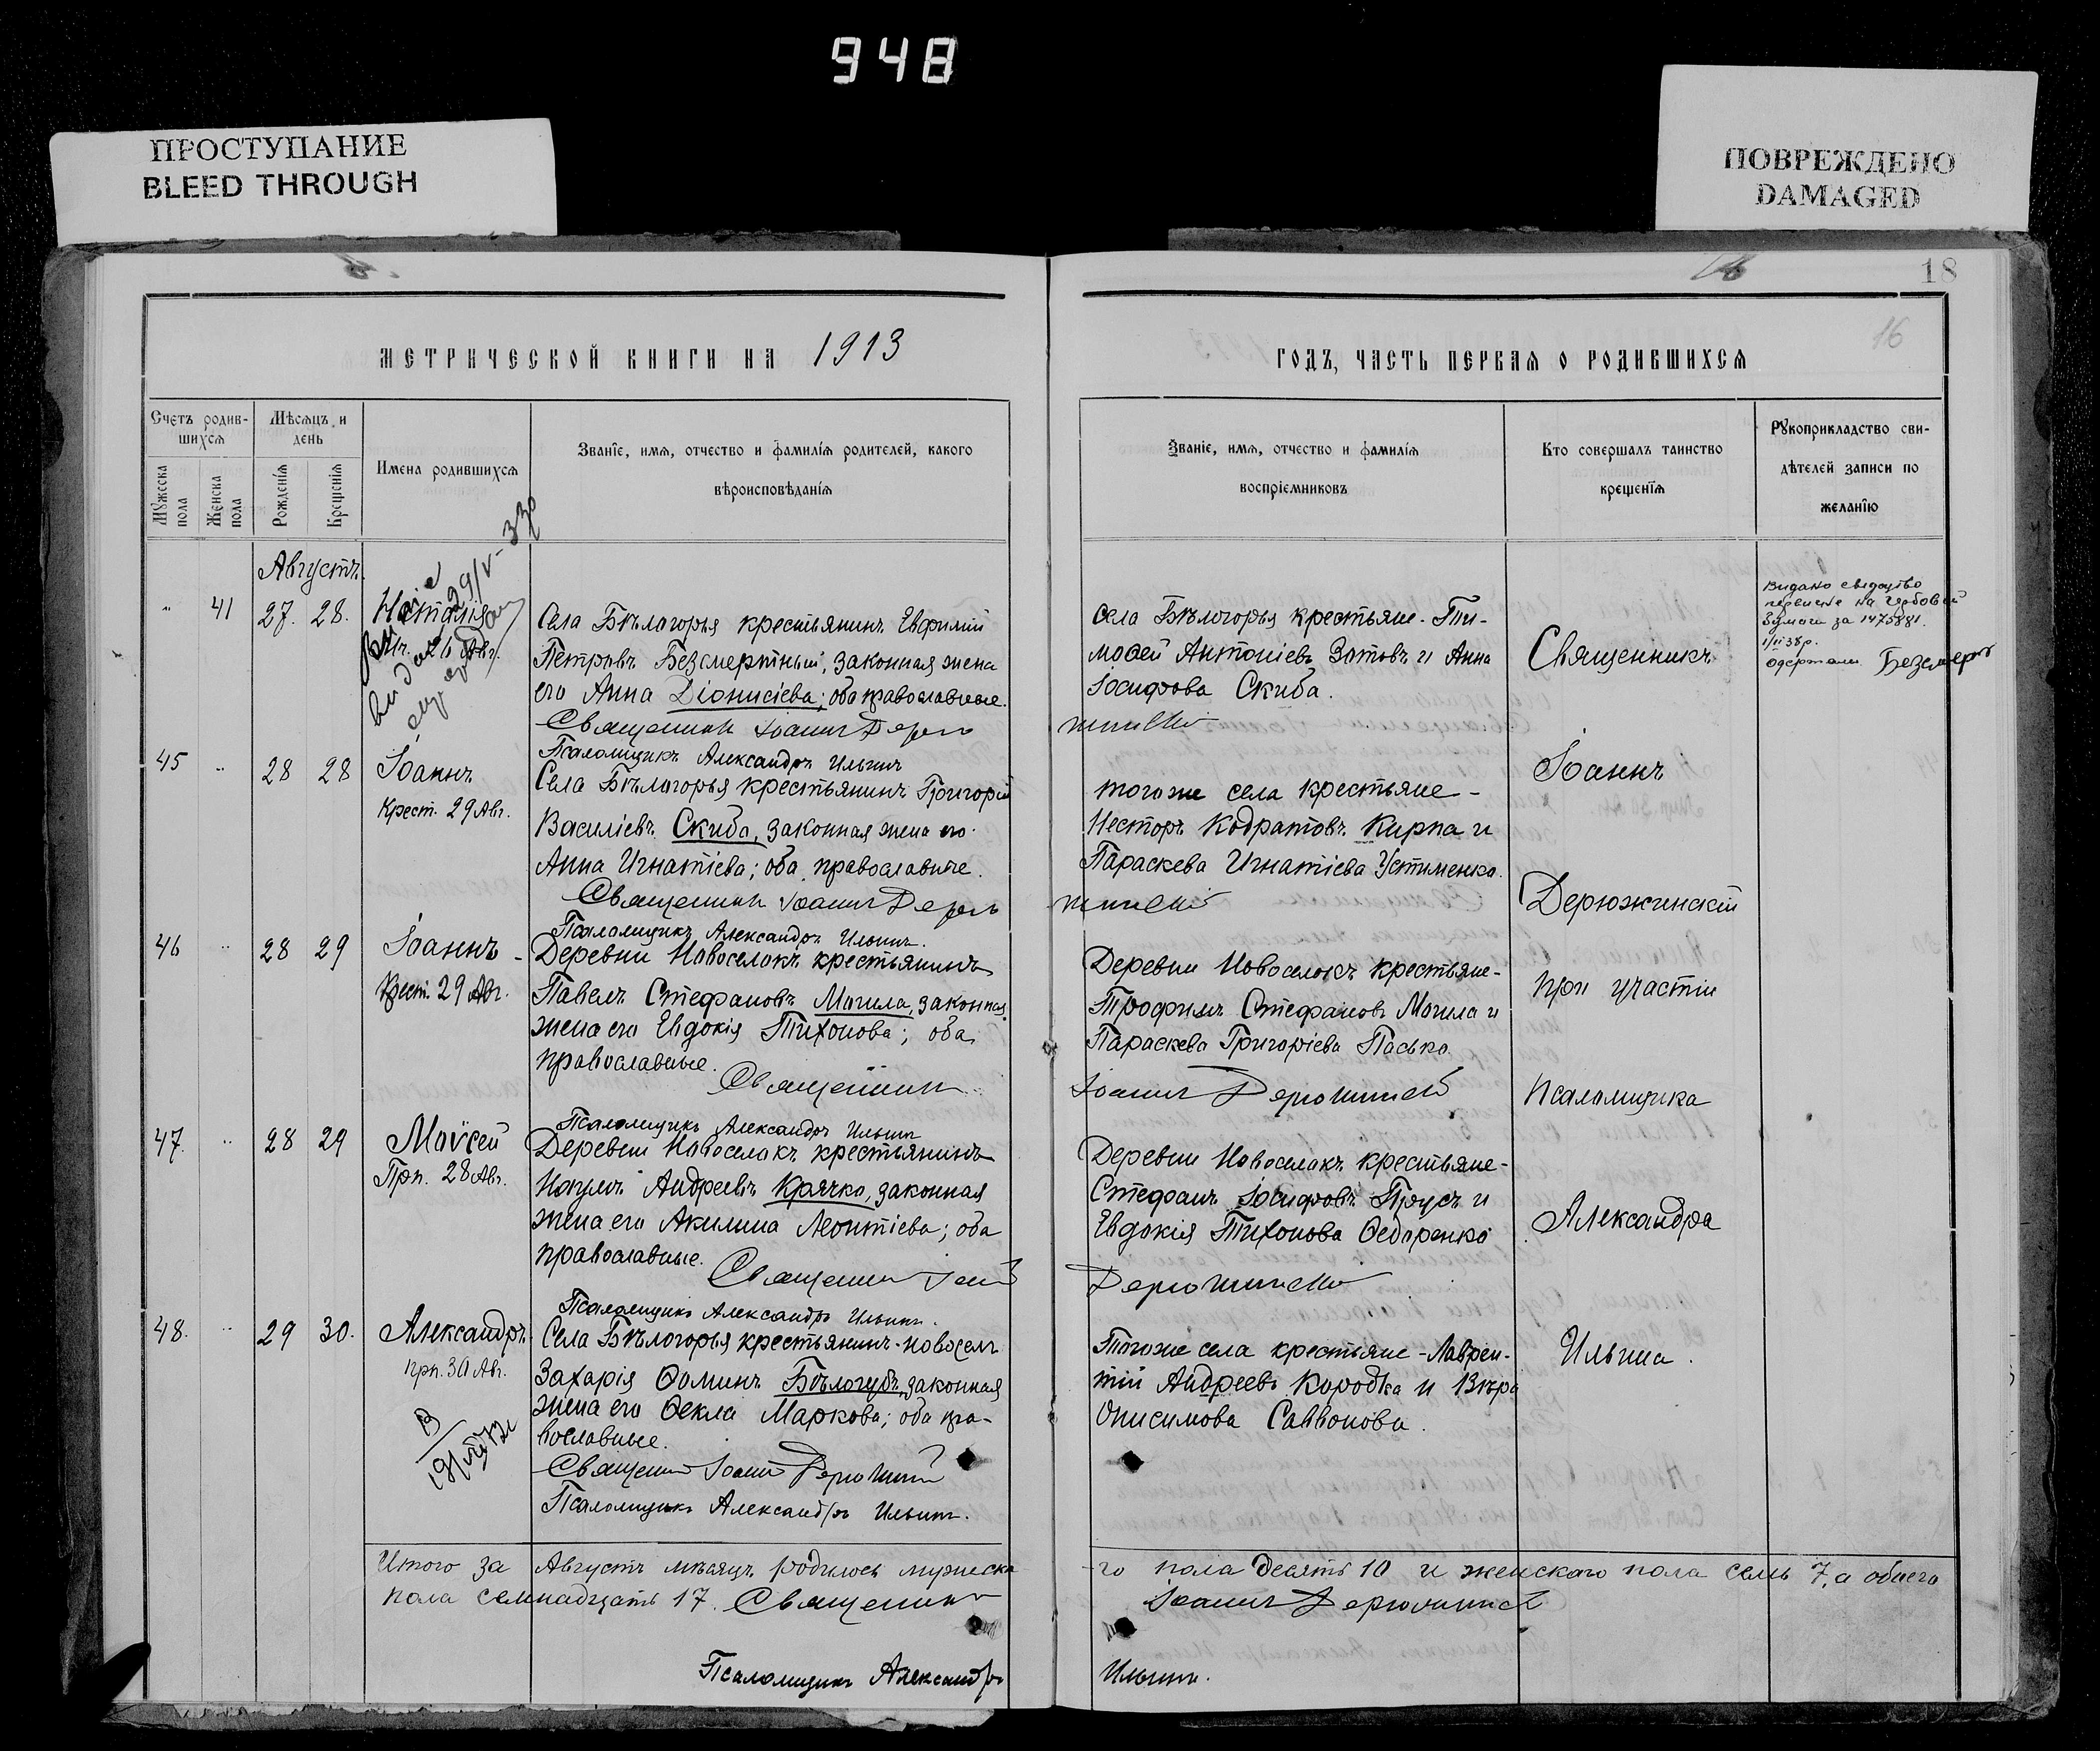 948
ПРОСТУПАНИЕ
BLEED THROUGH
ПОВРЕЖДЕНО
DAMAGED
18
16
МЕТРИЧЕСКОЙ КНИГИ НА 1913
ГОДЪ, ЧАСТЬ ПЕРВАЯ О РОДИВШИХСЯ
Счетъ родив-
шихся
Мужеска пола
Женска пола
Мѣсяцъ и
день
Рожденія
Крещенія
Имена родившихся
Званіе, имя, отчество и фамилія родителей, какого
вѣроисповѣданія
Званіе, имя, отчество и фамилія
воспріемниковъ
Кто совершалъ таинство
крещенія
Рукоприкладство сви-
дѣтелей записи по
желанію
Августъ
" 41 27. 28. Наталія
29/V-33р
Села Бѣлогорья крестьянинъ Евфимій
Петровъ Безсмертный, законная жена
его Анна Діонисіева; оба православные.
Священникъ Іоаннъ Дерю
Псаломщикъ Александръ Ильинъ
села Бѣлогорья крестьяне - Ти-
мофей Антоніевъ Зотовъ и Анна
Іосифова Скиба.
жинскій
Священникъ
Видано свидоцтво
на Гербовій
за 1475881
одержали Безсмерт
45 " 28 28 Іоаннъ
Крест. 29 Авг.
Села Бѣлогорья крестьянинъ Григорій
Василіевъ Скиба, законная жена его
Анна Игнатіева; оба православные.
Священникъ Іоаннъ Дерю
Псаломщикъ Александръ Ильинъ.
тогоже села крестьяне -
Несторъ Кодратовъ Кирпа и
Параскева Игнатіева Устименко.
жинскій
Іоаннъ
Дерюжинскій
46 " 28 29 Іоаннъ -
Крест. 29 Авг.
Деревни Новоселокъ крестьянинъ
Павелъ Стефановъ Могила, законная
жена его Евдокія Тихонова; оба
православные.
Священникъ
Псаломщикъ Александръ Ильинъ
Деревни Новоселокъ крестьяне -
Трофимъ Стефановъ Могила и
Параскева Григоріева Пасько.
Іоаннъ Дерюжинскій
при участіи
псаломщика
47. " 28 29 Моѵсей
Прп. 28 Авг.
Деревни Новоселокъ крестьянинъ
Наумъ Андреевъ Крячко, законная
жена его Акилина Леонтіева; оба
православные.
Священникъ Іоаннъ
Псаломщикъ Александръ Ильинъ.
Деревни Новоселокъ крестьяне -
Стефанъ Іосифовъ Прусъ и
Евдокія Тихонова Ѳедоренко
Дерюжинскій
Александра
48. " 29 30. Александръ
прп. 30 Авг.
Села Бѣлогорья крестьянинъ-новоселъ
Захарія Ѳоминъ Бѣлогубъ, законная
жена его Ѳекла Маркова; оба пра-
вославные.
Священникъ Іоаннъ Дерюжинскій
Псаломщикъ Александръ Ильинъ.
Тогоже села крестьяне - Лаврен-
тій Андреевъ Коробка и Вѣра
Онисимова Саввонова.
Ильина.
Итого за Августъ мѣсяцъ родилось мужеска-
го пола десять 10 и женскаго пола семь 7, а обоего
пола семнадцать 17. Священникъ
Іоаннъ Дерюжинскій
Псаломщикъ Александръ
Ильинъ.